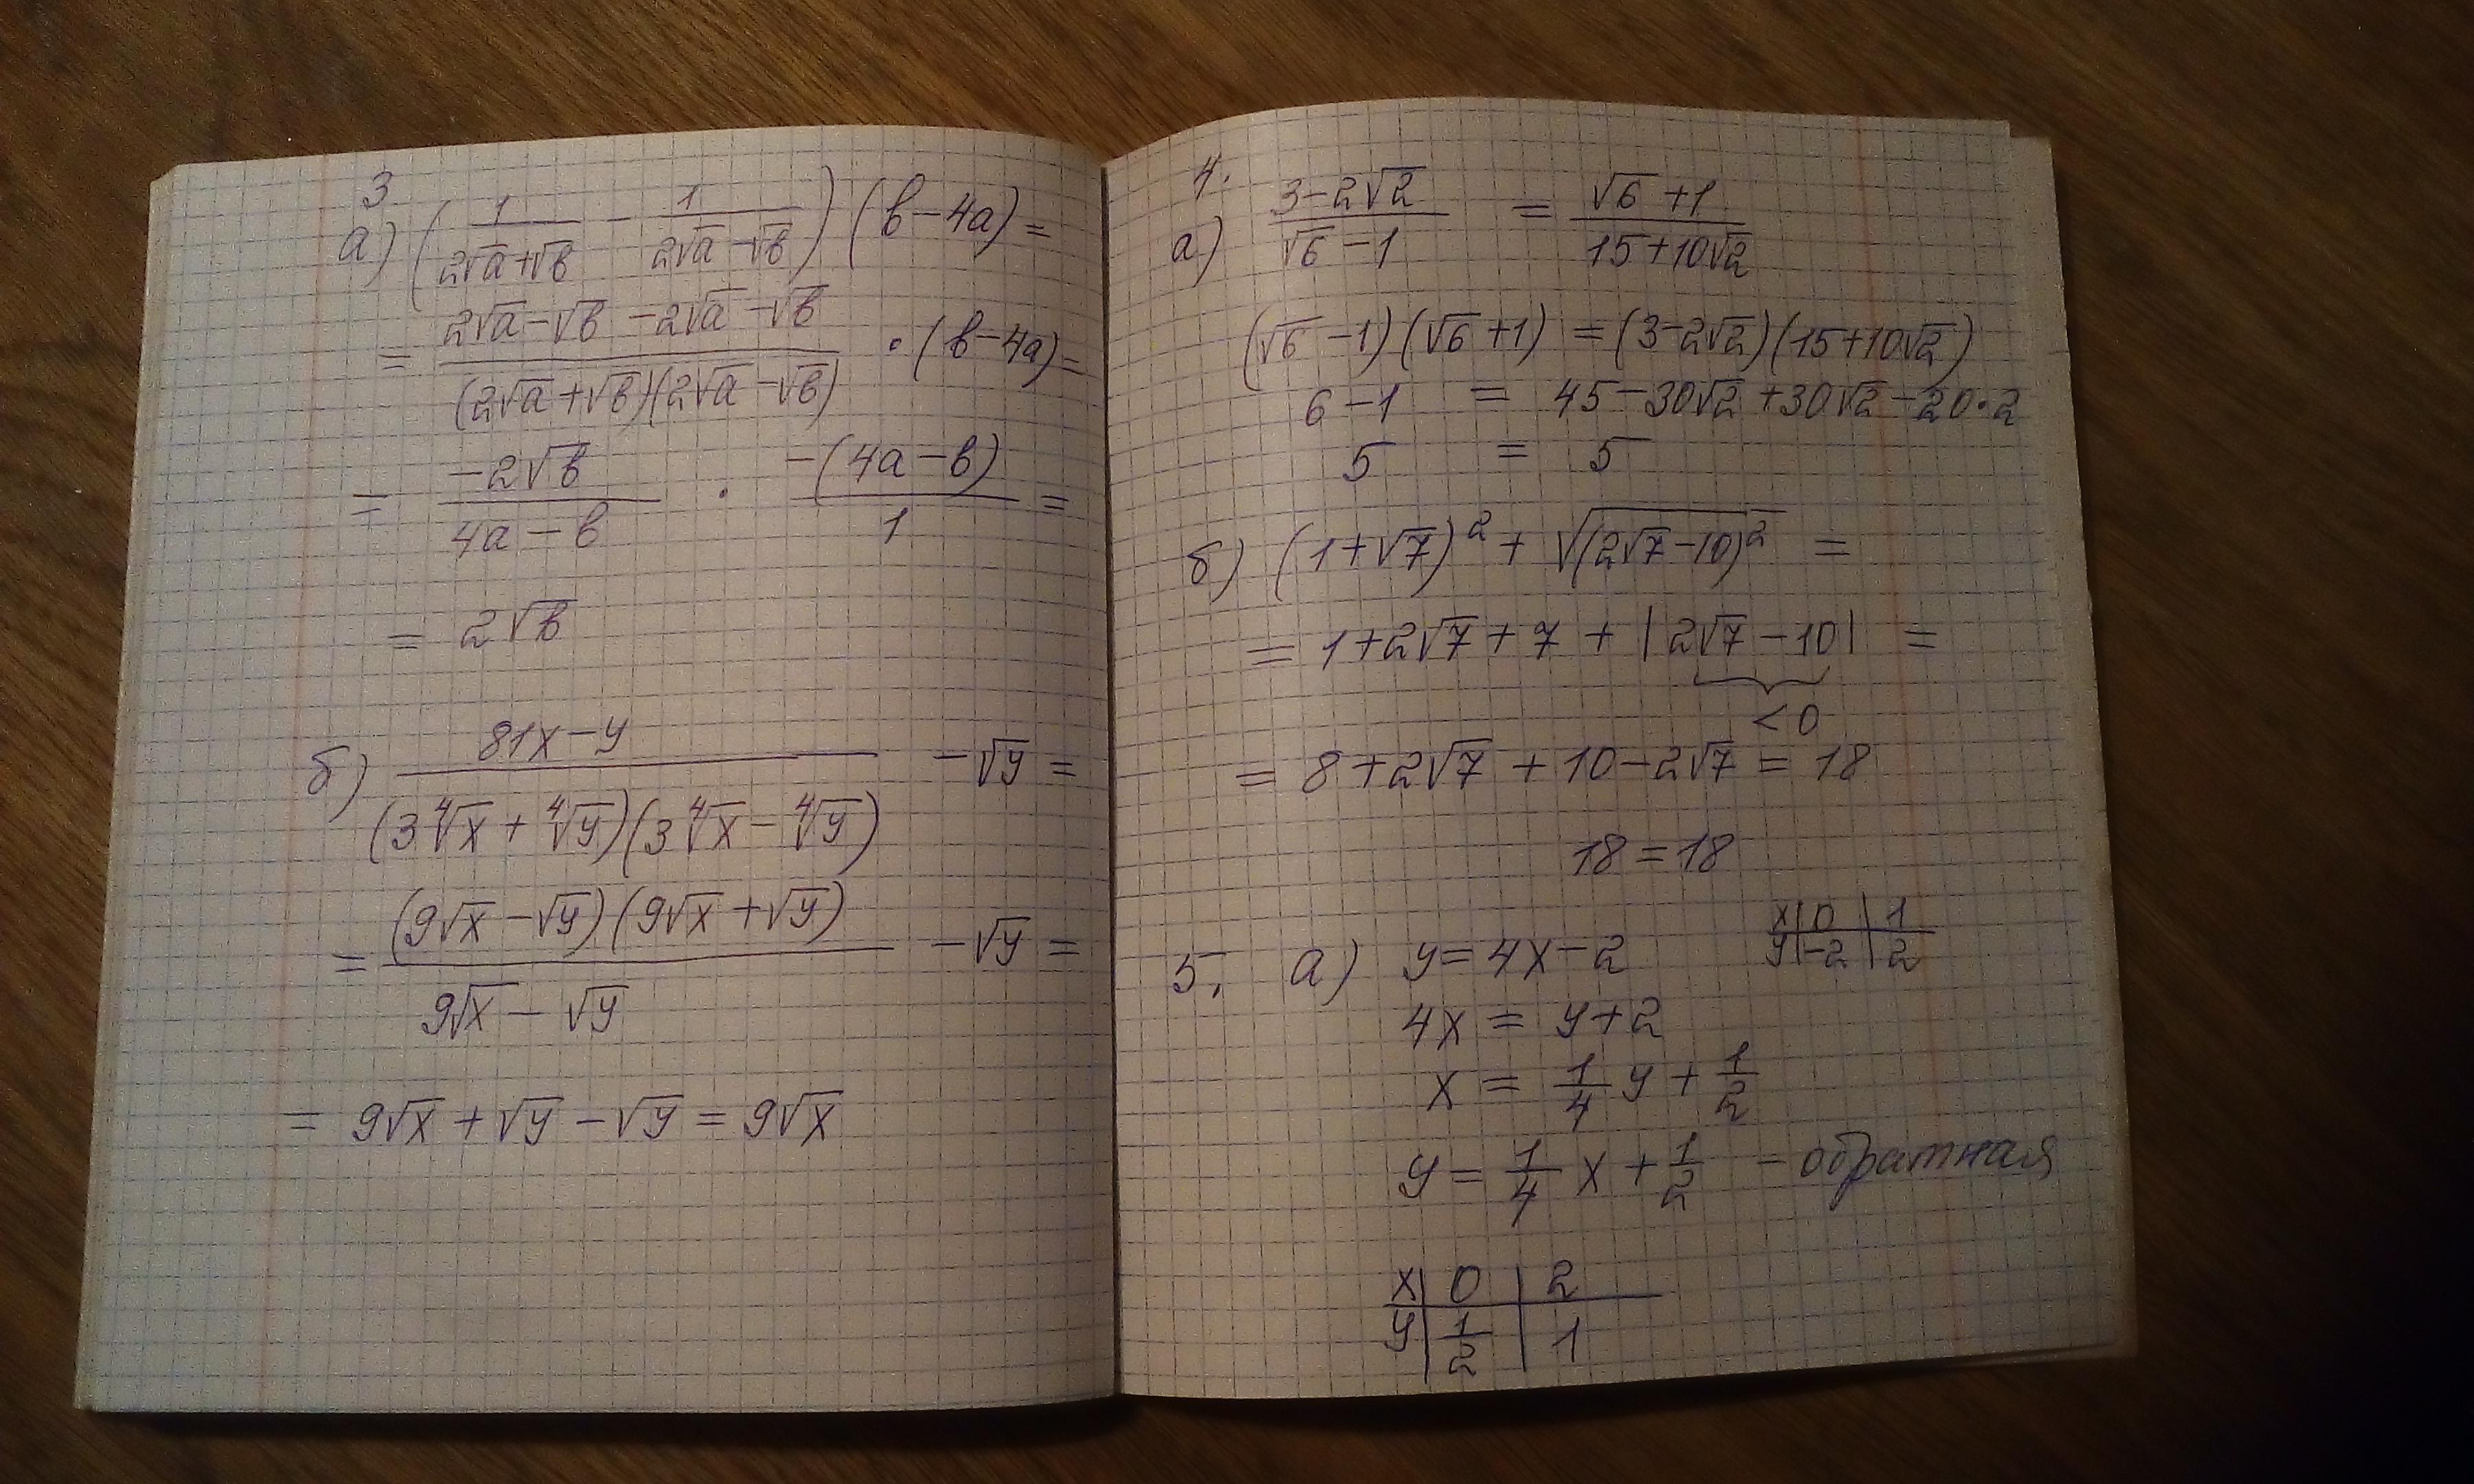 3
а) (1/(2√a+√b) - 1/(2√a-√b)) (b-4a) =
= (2√a-√b-2√a-√b)/((2√a+√b)(2√a-√b)) · (b-4a) =
= (-2√b)/(4a-b) · (-(4a-b))/1 =
= 2√b
б) (81x-y)/((3∜x+∜y)(3∜x-∜y)) - √y =
= ((9√x-√y)(9√x+√y))/(9√x-√y) - √y =
= 9√x+√y-√y = 9√x
4.
а) (3-2√2)/(√6-1) = (√6+1)/(15+10√2)
(√6-1)(√6+1) = (3-2√2)(15+10√2)
6-1 = 45-30√2+30√2-20·2
5 = 5
б) (1+√7)² + √((2√7-10)²) =
= 1+2√7+7+|2√7-10| =
<0
= 8+2√7+10-2√7 = 18
18=18
5. а) y=4x-2
x | 0 | 1
y | -2 | 2
4x = y+2
x = 1/4 y + 1/2
y = 1/4 x + 1/2 - обратная
x | 0 | 2
y | 1/2 | 1